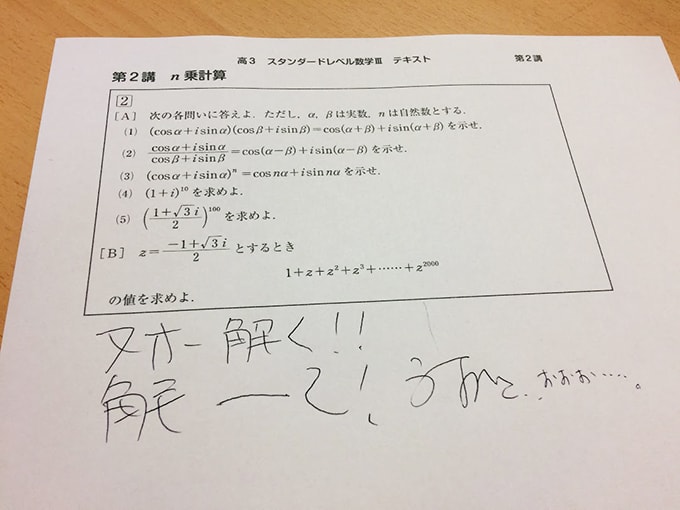 高3 スタンダードレベル数学Ⅲ テキスト 第2講
第2講 n乗計算
2
[A] 次の各問いに答えよ. ただし, α, βは実数, nは自然数とする.
(1) (cosα+isinα)(cosβ+isinβ)=cos(α+β)+isin(α+β)を示せ.
(2) (cosα+isinα)/(cosβ+isinβ)=cos(α−β)+isin(α−β)を示せ.
(3) (cosα+isinα)ⁿ=cosnα+isinnαを示せ.
(4) (1+i)¹⁰を求めよ.
(5) ((1+√3i)/2)¹⁰⁰を求めよ.
[B] z=(−1+√3i)/2とするとき
1+z+z²+z³+……+z²⁰⁰⁰
の値を求めよ.
ヌオー解く!!
解
おおお……。